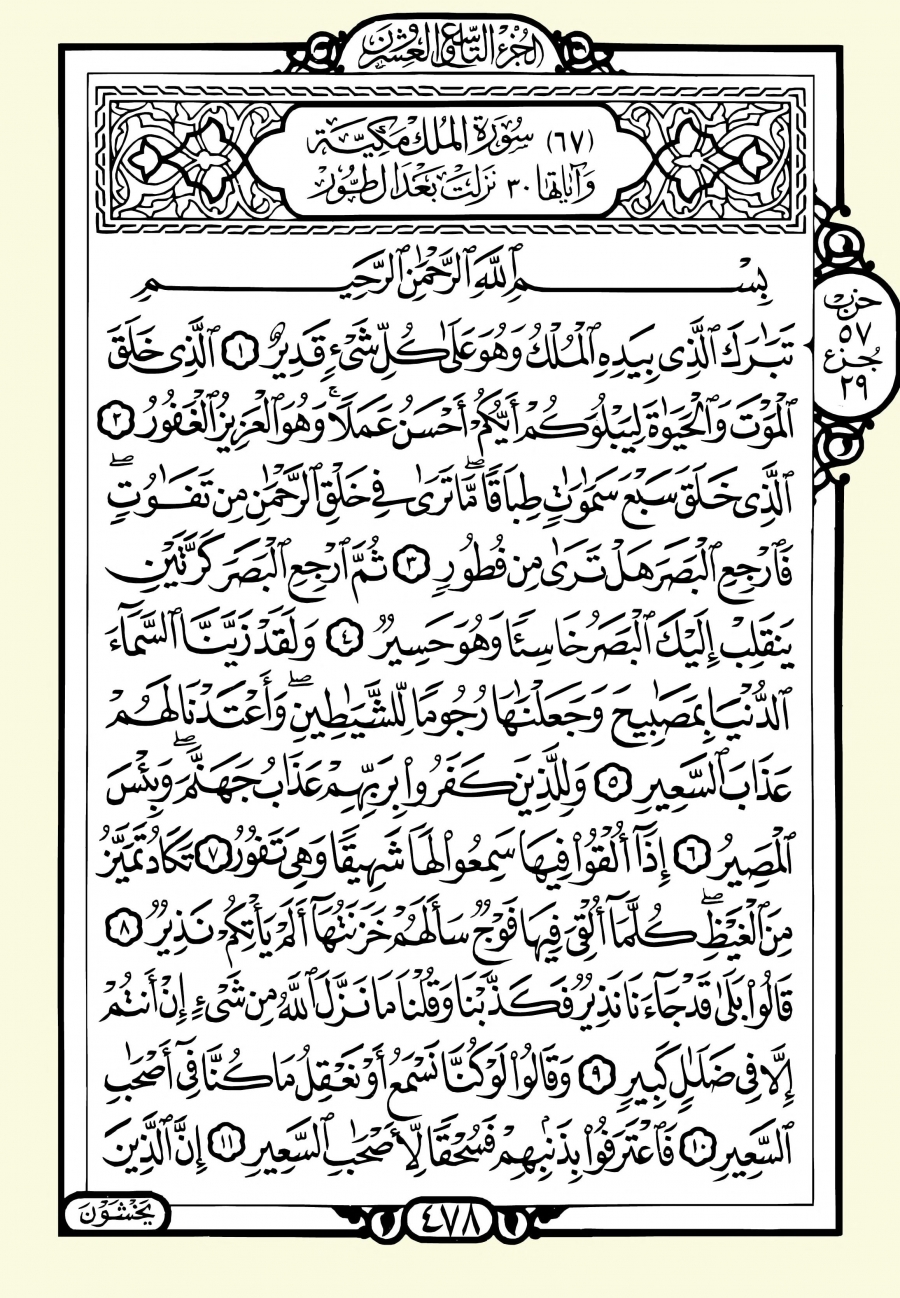 الجُزءُ التَّاسِعُ وَالعِشْرُونَ
(٦٧) سُورَةُ المُلْكِ مَكِّيَّة
وَآيَاتُهَا ٣٠ نَزَلَتْ بَعْدَ الطُّورِ
بِسْمِ ٱللَّهِ ٱلرَّحْمَٰنِ ٱلرَّحِيمِ
تَبَٰرَكَ ٱلَّذِى بِيَدِهِ ٱلْمُلْكُ وَهُوَ عَلَىٰ كُلِّ شَىْءٍ قَدِيرٌ ١ ٱلَّذِى خَلَقَ
ٱلْمَوْتَ وَٱلْحَيَوٰةَ لِيَبْلُوَكُمْ أَيُّكُمْ أَحْسَنُ عَمَلًا ۚ وَهُوَ ٱلْعَزِيزُ ٱلْغَفُورُ ٢
ٱلَّذِى خَلَقَ سَبْعَ سَمَٰوَٰتٍ طِبَاقًا ۖ مَّا تَرَىٰ فِى خَلْقِ ٱلرَّحْمَٰنِ مِن تَفَٰوُتٍ ۖ
فَٱرْجِعِ ٱلْبَصَرَ هَلْ تَرَىٰ مِن فُطُورٍ ٣ ثُمَّ ٱرْجِعِ ٱلْبَصَرَ كَرَّتَيْنِ
يَنقَلِبْ إِلَيْكَ ٱلْبَصَرُ خَاسِئًا وَهُوَ حَسِيرٌ ٤ وَلَقَدْ زَيَّنَّا ٱلسَّمَآءَ
ٱلدُّنْيَا بِمَصَٰبِيحَ وَجَعَلْنَٰهَا رُجُومًا لِّلشَّيَٰطِينِ ۖ وَأَعْتَدْنَا لَهُمْ
عَذَابَ ٱلسَّعِيرِ ٥ وَلِلَّذِينَ كَفَرُوا۟ بِرَبِّهِمْ عَذَابُ جَهَنَّمَ ۖ وَبِئْسَ
ٱلْمَصِيرُ ٦ إِذَآ أُلْقُوا۟ فِيهَا سَمِعُوا۟ لَهَا شَهِيقًا وَهِىَ تَفُورُ ٧ تَكَادُ تَمَيَّزُ
مِنَ ٱلْغَيْظِ ۖ كُلَّمَآ أُلْقِىَ فِيهَا فَوْجٌ سَأَلَهُمْ خَزَنَتُهَآ أَلَمْ يَأْتِكُمْ نَذِيرٌ ٨
قَالُوا۟ بَلَىٰ قَدْ جَآءَنَا نَذِيرٌ فَكَذَّبْنَا وَقُلْنَا مَا نَزَّلَ ٱللَّهُ مِن شَىْءٍ إِنْ أَنتُمْ
إِلَّا فِى ضَلَٰلٍ كَبِيرٍ ٩ وَقَالُوا۟ لَوْ كُنَّا نَسْمَعُ أَوْ نَعْقِلُ مَا كُنَّا فِىٓ أَصْحَٰبِ
ٱلسَّعِيرِ ١٠ فَٱعْتَرَفُوا۟ بِذَنۢبِهِمْ فَسُحْقًا لِّأَصْحَٰبِ ٱلسَّعِيرِ ١١ إِنَّ ٱلَّذِينَ
حزب
٥٧
جُزء
٢٩
يَخْشَوْنَ
٤٧٨